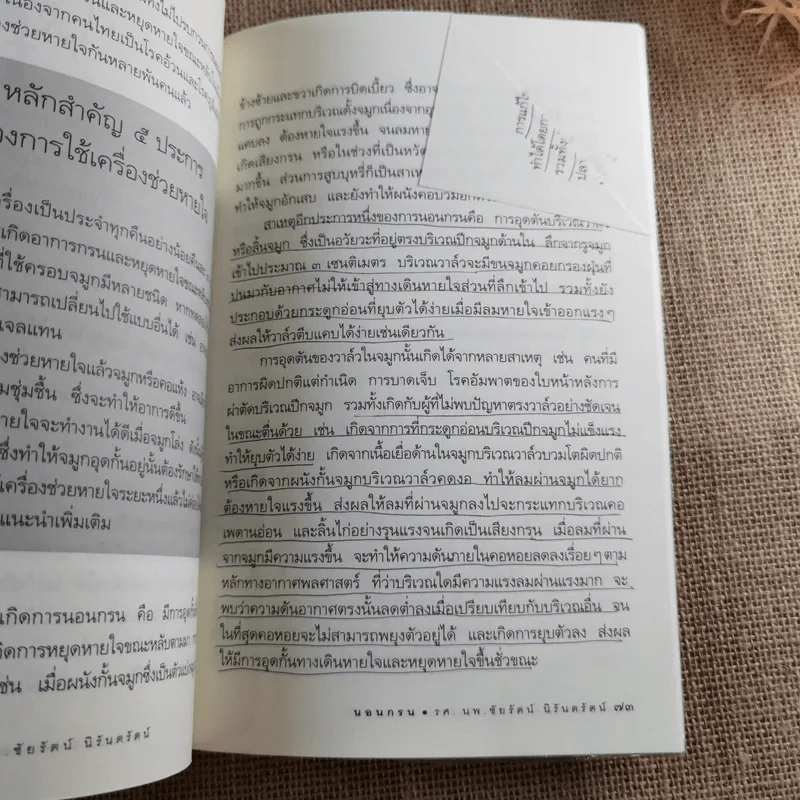 หลักสำคัญ ๕ ประการ
องการใช้เครื่องช่วยหายใจ
ครื่องเป็นประจำทุกคืนอย่างน้อยคืนละ
เกิดอาการกรนและหยุดหายใจขณะหลับ
ที่ใช้ครอบจมูกมีหลายชนิด หากทดลอง
สามารถเปลี่ยนไปใช้แบบอื่นได้ เช่น
เจลแทน
งช่วยหายใจแล้วจมูกหรือคอแห้ง
มชุ่มชื้น ซึ่งจะทำให้อาการดีขึ้น
ายใจจะทำงานได้ดีเมื่อจมูกโล่ง
ซึ่งทำให้จมูกอุดกั้นอยู่นั้นต้องรักษา
เครื่องช่วยหายใจระยะหนึ่งแล้วไม่
แนะนำเพิ่มเติม
นเกิดการนอนกรน คือ มีการอุดกั้น
กิดการหยุดหายใจขณะหลับตามมา
ช่น เมื่อผนังกั้นจมูกซึ่งเป็นตัวแบ่ง
. ชัยรัตน์ นิรันตรัตน์
ข้างซ้ายและขวาเกิดการบิดเบี้ยว ซึ่งอาจ
การถูกกระแทกบริเวณดั้งจมูกเนื่องจากอุ
แคบลง ต้องหายใจแรงขึ้น จนลมหาย
เกิดเสียงกรน หรือในช่วงที่เป็นหวัด
มากขึ้น ส่วนการสูบบุหรี่ก็เป็นสาเห
ทำให้จมูกอักเสบ และยังทำให้ผนังคอบวมอีกด้วย
การแก้ไข
ทำได้โดยกา
รวมทั้ง
ปลา
สาเหตุอีกประการหนึ่งของการนอนกรนคือ การอุดตันบริเวณวาล์ว
หรือลิ้นจมูก ซึ่งเป็นอวัยวะที่อยู่ตรงบริเวณปีกจมูกด้านใน ลึกจากรูจมูก
เข้าไปประมาณ ๓ เซนติเมตร บริเวณวาล์วจะมีขนจมูกคอยกรองฝุ่นที่
ปนมากับอากาศไม่ให้เข้าสู่ทางเดินหายใจส่วนที่ลึกเข้าไป รวมทั้งยัง
ประกอบด้วยกระดูกอ่อนที่ยุบตัวได้ง่ายเมื่อมีลมหายใจเข้าออกแรงๆ
ส่งผลให้วาล์วตีบแคบได้ง่ายเช่นเดียวกัน
การอุดตันของวาล์วในจมูกนั้นเกิดได้จากหลายสาเหตุ เช่น คนที่มี
อาการผิดปกติแต่กำเนิด การบาดเจ็บ โรคอัมพาตของใบหน้าหลังการ
ผ่าตัดบริเวณปีกจมูก รวมทั้งเกิดกับผู้ที่ไม่พบปัญหาตรงวาล์วอย่างชัดเจน
ในขณะตื่นด้วย เช่น เกิดจากการที่กระดูกอ่อนบริเวณปีกจมูกไม่แข็งแรง
ทำให้ยุบตัวได้ง่าย เกิดจากเนื้อเยื่อด้านในจมูกบริเวณวาล์วบวมโตผิดปกติ
หรือเกิดจากผนังกั้นจมูกบริเวณวาล์วคดงอ ทำให้ลมผ่านจมูกได้ยาก
ต้องหายใจแรงขึ้น ส่งผลให้ลมที่ผ่านจมูกลงไปจะกระแทกบริเวณคอ
เพดานอ่อน และลิ้นไก่อย่างรุนแรงจนเกิดเป็นเสียงกรน เมื่อลมที่ผ่าน
จากจมูกมีความแรงขึ้น จะทำให้ความดันภายในคอหอยลดลงเรื่อยๆ ตาม
หลักทางอากาศพลศาสตร์ ที่ว่าบริเวณใดมีความแรงลมผ่านแรงมาก จะ
พบว่าความดันอากาศตรงนั้นลดต่ำลงเมื่อเปรียบเทียบกับบริเวณอื่น จน
ในที่สุดคอหอยจะไม่สามารถพยุงตัวอยู่ได้ และเกิดการยุบตัวลง ส่งผล
ให้มีการอุดกั้นทางเดินหายใจและหยุดหายใจขึ้นชั่วขณะ
นอนกรน • รศ. นพ. ชัยรัตน์ นิรันตรัตน์ ๗๓